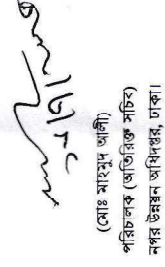 (মোঃ মাহমুদ আলী)
পরিচালক (অতিরিক্ত সচিব)
নগর উন্নয়ন অধিদপ্তর, ঢাকা।